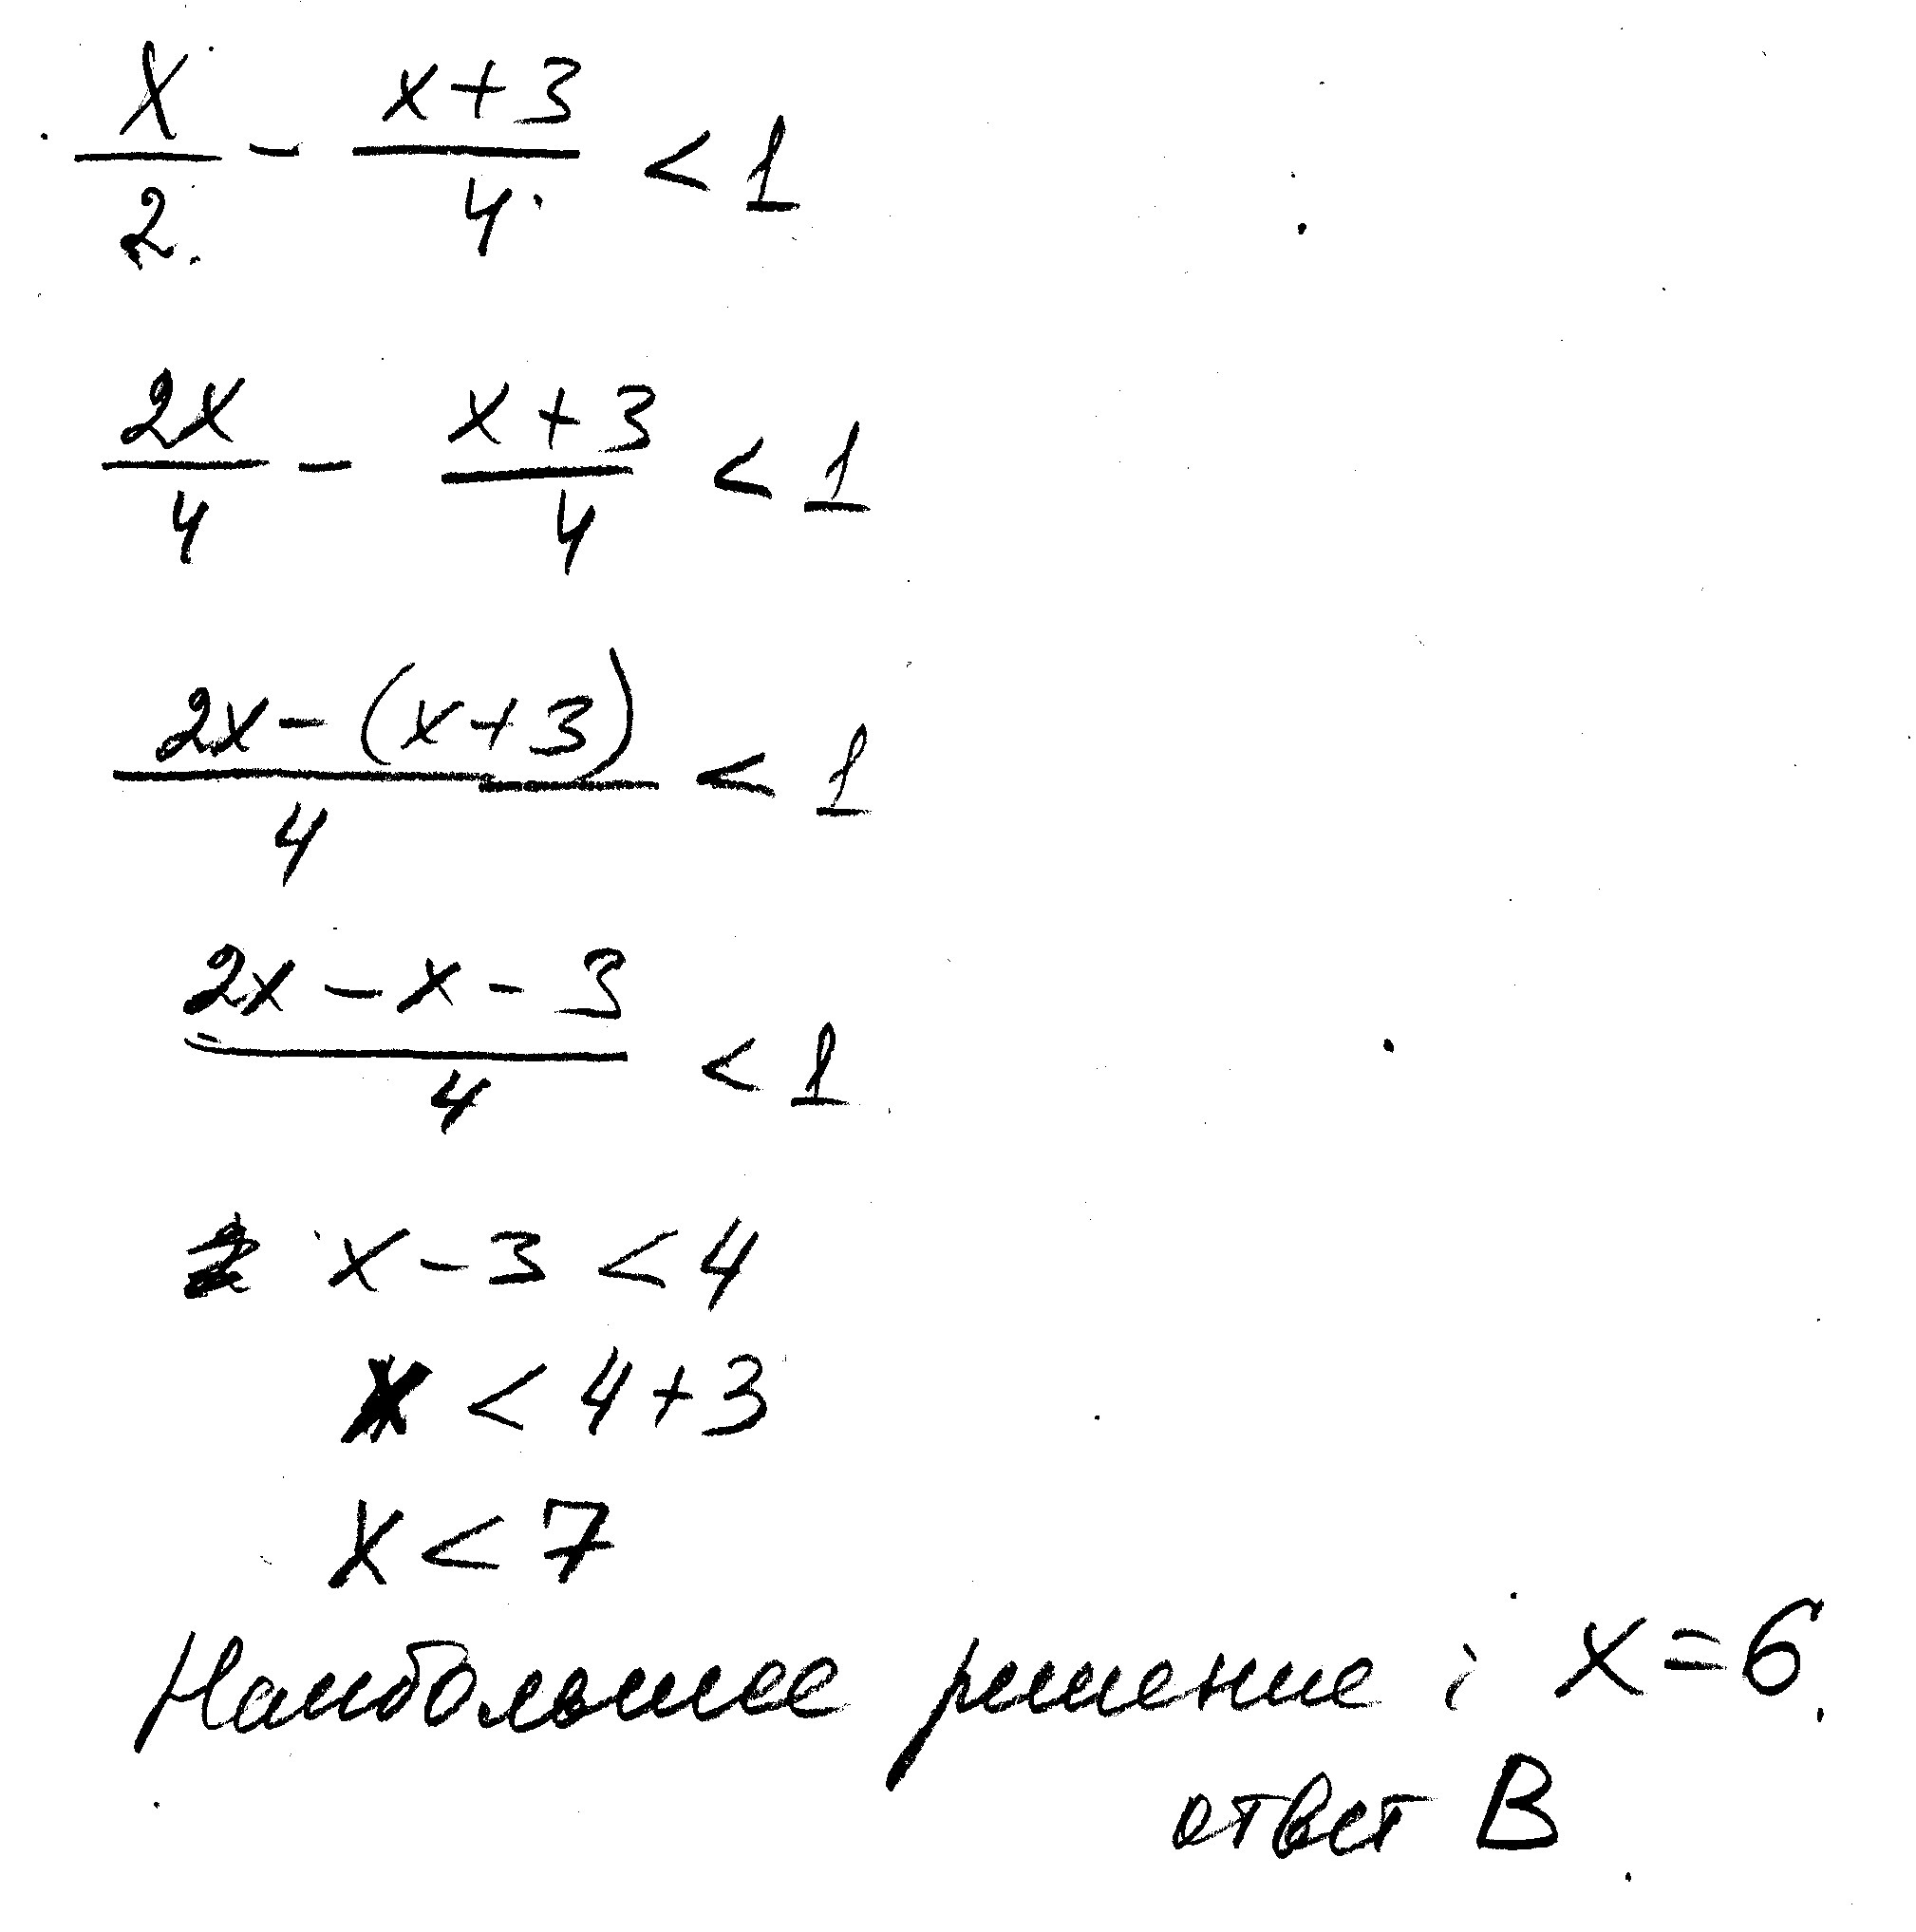 x/2 - x+3/4 < 1
2x/4 - x+3/4 < 1
2x-(x+3)/4 < 1
2x-x-3/4 < 1
x-3<4
x<4+3
x<7
Наибольшее решение: x=6.
ответ В